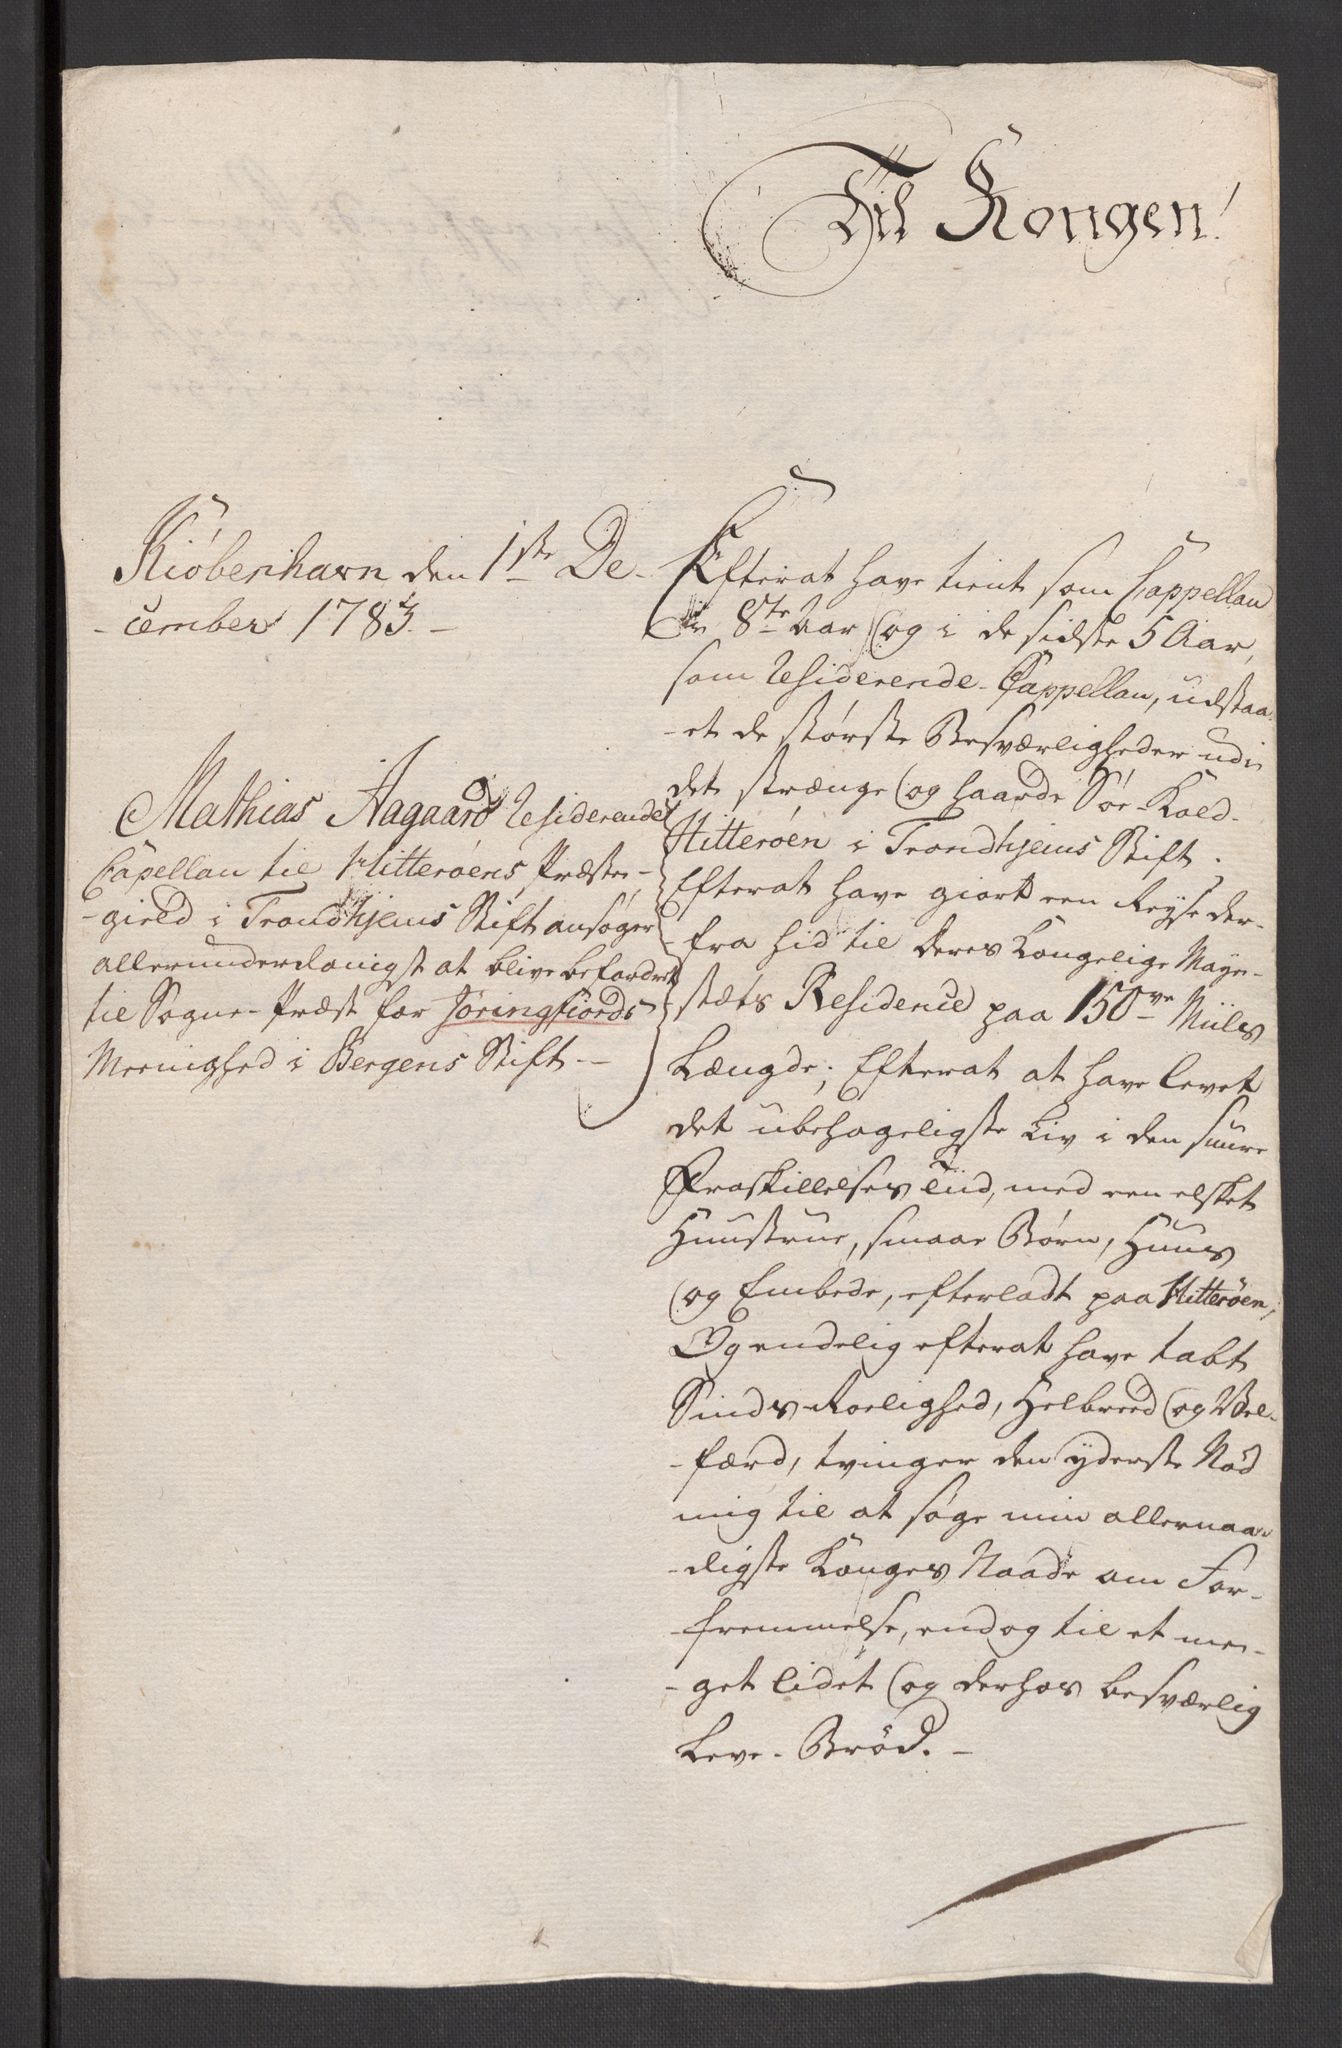 Til Kongen!
Kiöbenhavn den 1ste De-
-cember 1783.-
Mathias Aagaard Residerende
Capellan til Hitteröens Præste-
-gield i Trondhjems Stift ansøger
allerunderdanigst at blive befordret
til Sogne-Præst for Jöringfiords
Meenighed i Bergens Stift.-
Efterat have tient som Cappellan
i 8te Aar og i de sidste 5 Aar,
som Residerende-Cappellan, udstaa-
-et de største Besværligheder udi
det strænge og haarde Søe-Kald
Hitteröen i Trondhjems Stift;
Efterat have giort een Reyse der-
-fra hid til Deres Kongelige Maye-
stæts Residence paa 150ve Miiles
Længde; Efterat at have levet
det ubehageligste Liv i den suure
Fraskillelses Tiid, med een elsket
Huustrue, smaae Børn, Huus
og Embede, efterladt paa Hitteröen;
Og endelig efterat have tabt
Sinds Roelighed, Helbreed og Vel-
-færd, tvinger den yderste Nød
mig til at søge min allernaa-
-digste Konges Naade om For-
-fremmelse, endog til et mee-
-get lidet og derhos besværlig
Leve-Brød.-